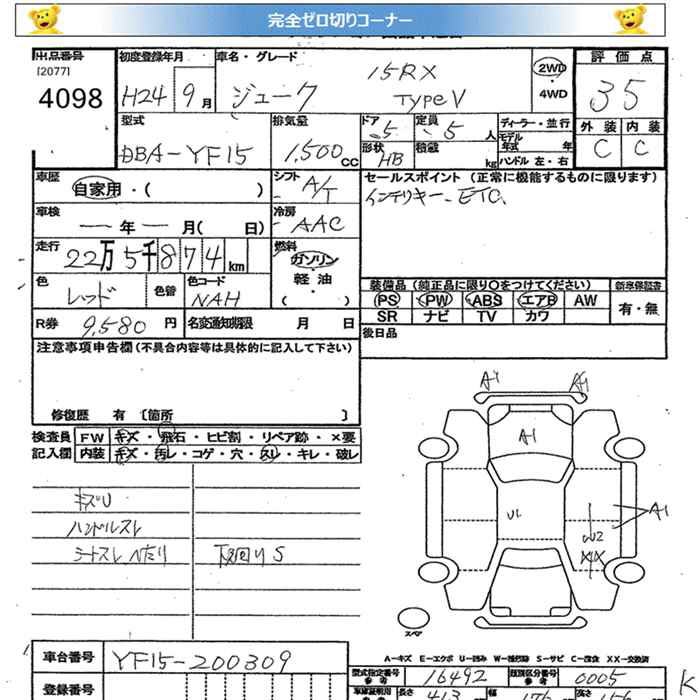 完全ゼロ切りコーナー
出品番号 初度登録年月 車名・グレード 評価点
[2077]
4098
H24 9月 ジューク 15RX TypeV 2WD・4WD 35
型式 排気量 ドア 5 定員 5人 ディーラー・並行 外装 内装
DBA-YF15 1,500cc 形状 HB 積載 kg モデル年式 年 C C
ハンドル 左・右
車歴 自家用・( ) シフト A/T セールスポイント (正常に機能するものに限ります)
インテリキー、ETC、
車検 ー年ー月( 日) 冷房 AAC
走行 22万5千874km 燃料 ガソリン
軽油
( )
色 レッド 色替 色コード NAH
装備品(純正品に限り○をつけてください) 新車保証書
PS PW ABS エアB AW 有・無
SR ナビ TV カワ
R券 9,580円 名変通知期限 月 日 後日品
注意事項申告欄(不具合内容等は具体的に記入して下さい)
修復歴 有 〔箇所 〕
検査員 FW キズ・飛石・ヒビ割・リペア跡・×要
記入欄 内装 キズ・汚レ・コゲ・穴・スレ・キレ・破レ
キズU
ハンドルスレ
シートスレ ヘタリ 下廻りS
A1 A1
A1
U1
A1
U2
XX
スペア
車台番号 YF15-200309
登録番号
A-キズ E-エクボ U-凹み W-補修跡 S-サビ C-腐食 XX-交換済
型式指定番号 参考 16492 類別区分番号 参考 0005
長さ 413 幅 176 高さ 156
K